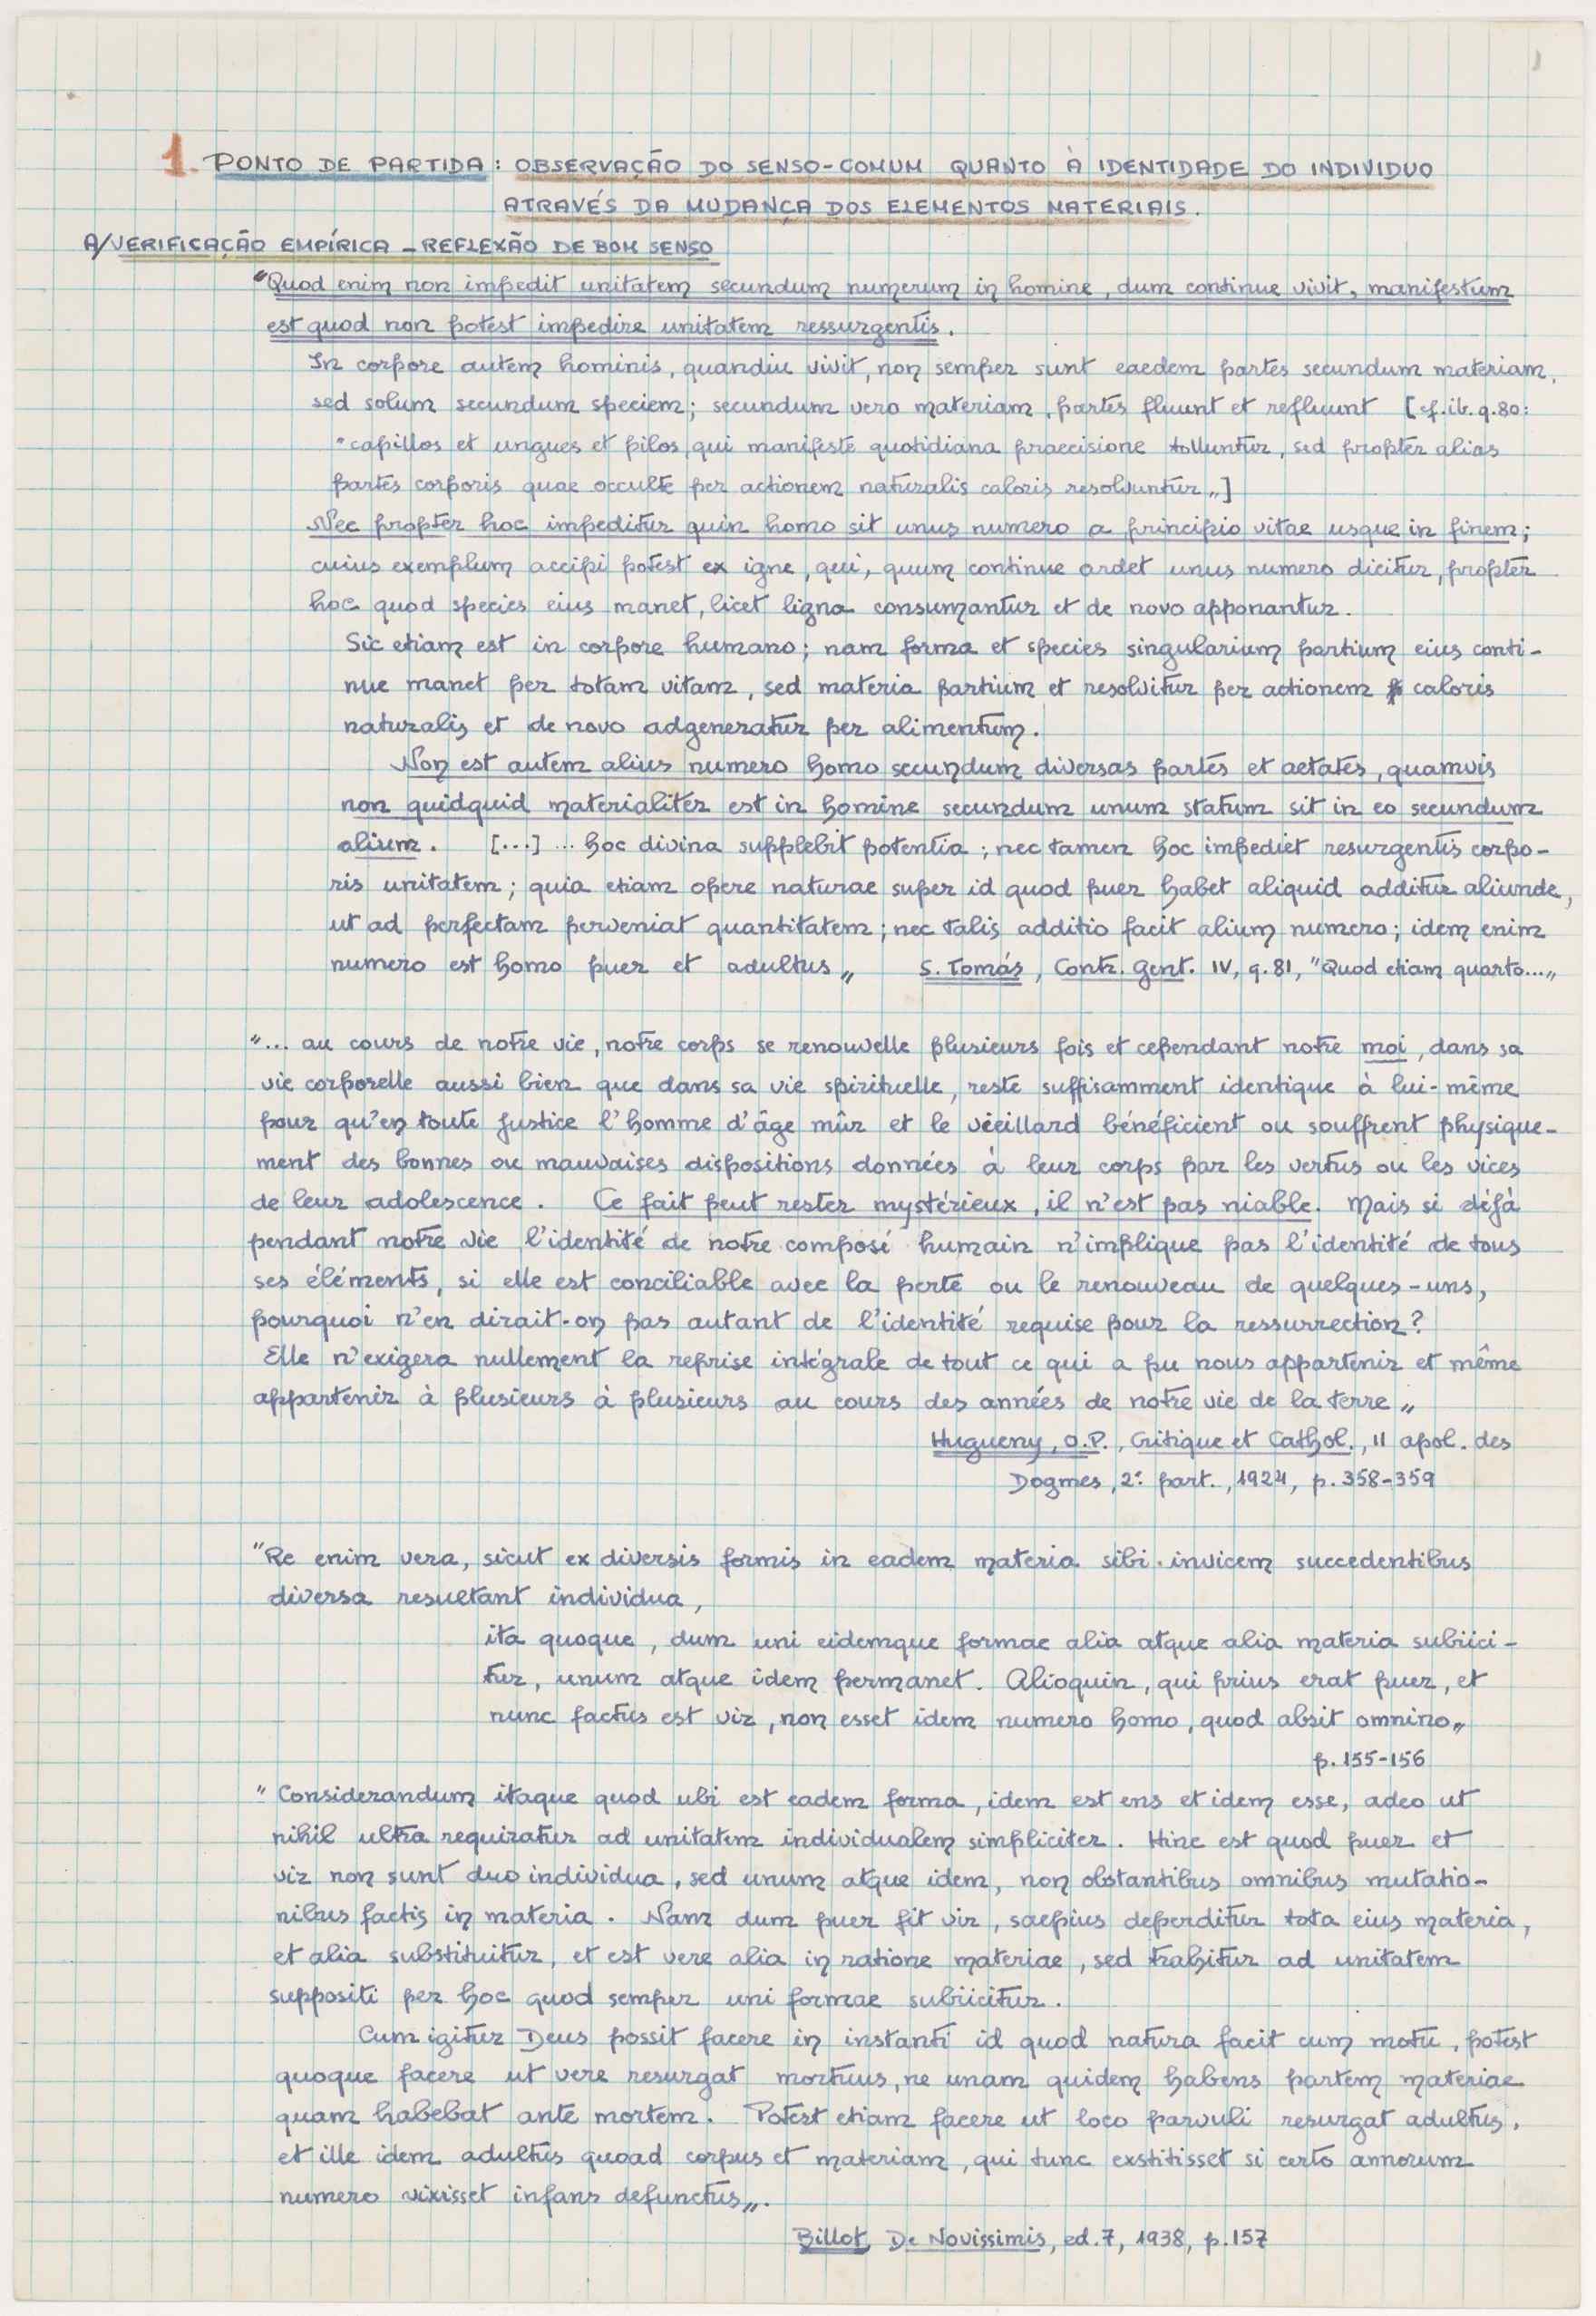 1. PONTO DE PARTIDA : OBSERVAÇÃO DO SENSO-COMUM QUANTO À IDENTIDADE DO INDIVIDUO
ATRAVÉS DA MUDANÇA DOS ELEMENTOS MATERIAIS.
A/VERIFICAÇÃO EMPÍRICA - REFLEXÃO DE BOM SENSO
"Quod enim non impedit unitatem secundum numerum in homine, dum continue vivit, manifestum
est quod non potest impedire unitatem ressurgentis.
In corpore autem hominis, quandiu vivit, non semper sunt eaedem partes secundum materiam,
sed solum secundum speciem; secundum vero materiam, partes fluunt et refluunt [cf. ib. q. 80:
"capillos et ungues et pilos, qui manifeste quotidiana praecisione tolluntur, sed propter alias
partes corporis quae occulte per actionem naturalis caloris resolvuntur„]
Nec propter hoc impeditur quin homo sit unus numero a principio vitae usque in finem;
cuius exemplum accipi potest ex igne, qui, quum continue ardet unus numero dicitur, propter
hoc quod species eius manet, licet ligna consumantur et de novo apponantur.
Sic etiam est in corpore humano; nam forma et species singularium partium eius conti-
nue manet per totam vitam, sed materia partium et resolvitur per actionem caloris
naturalis et de novo adgeneratur per alimentum.
Non est autem alius numero homo secundum diversas partes et aetates, quamvis
non quidquid materialiter est in homine secundum unum statum sit in eo secundum
alium. [...] ... hoc divina supplebit potentia; nec tamen hoc impediet resurgentis corpo-
ris unitatem; quia etiam opere naturae super id quod puer habet aliquid additur aliunde,
ut ad perfectam perveniat quantitatem; nec talis additio facit alium numero; idem enim
numero est homo puer et adultus„ S. Tomás, Contr. Gent. IV, q. 81, "Quod etiam quarto...„
"... au cours de notre vie, notre corps se renouvelle plusieurs fois et cependant notre moi, dans sa
vie corporelle aussi bien que dans sa vie spirituelle, reste suffisamment identique à lui-même
pour qu'en toute justice l'homme d'âge mûr et le vieillard bénéficient ou souffrent physique-
ment des bonnes ou mauvaises dispositions données à leur corps par les vertus ou les vices
de leur adolescence. Ce fait peut rester mystérieux, il n'est pas niable. Mais si déjà
pendant notre vie l'identité de notre composé humain n'implique pas l'identité de tous
ses éléments, si elle est conciliable avec la perte ou le renouveau de quelques-uns,
pourquoi n'en dirait-on pas autant de l'identité requise pour la ressurrection?
Elle n'exigera nullement la reprise intégrale de tout ce qui a pu nous appartenir et même
appartenir à plusieurs à plusieurs au cours des années de notre vie de la terre„
Hugueny, O.P., Critique et Cathol., II apol. des
Dogmes, 2ª part., 1924, p. 358-359
"Re enim vera, sicut ex diversis formis in eadem materia sibi invicem succedentibus
diversa resultant individua,
ita quoque, dum uni eidemque formae alia atque alia materia subiici-
tur, unum atque idem permanet. Alioquin, qui prius erat puer, et
nunc factus est vir, non esset idem numero homo, quod absit omnino„
p. 155-156
"Considerandum itaque quod ubi est eadem forma, idem est ens et idem esse, adeo ut
nihil ultra requiratur ad unitatem individualem simpliciter. Hinc est quod puer et
vir non sunt duo individua, sed unum atque idem, non obstantibus omnibus mutatio-
nibus factis in materia. Nam dum puer fit vir, saepius deperditur tota eius materia,
et alia substituitur, et est vere alia in ratione materiae, sed trahitur ad unitatem
suppositi per hoc quod semper uni formae subiicitur.
Cum igitur Deus possit facere in instanti id quod natura facit cum motu, potest
quoque facere ut vere resurgat mortuus, ne unam quidem habens partem materiae
quam habebat ante mortem. Potest etiam facere ut loco parvuli resurgat adultus,
et ille idem adultus quoad corpus et materiam, qui tunc exstitisset si certo annorum
numero vixisset infans defunctus„.
Billot, De Novissimis, ed. 7, 1938, p. 157